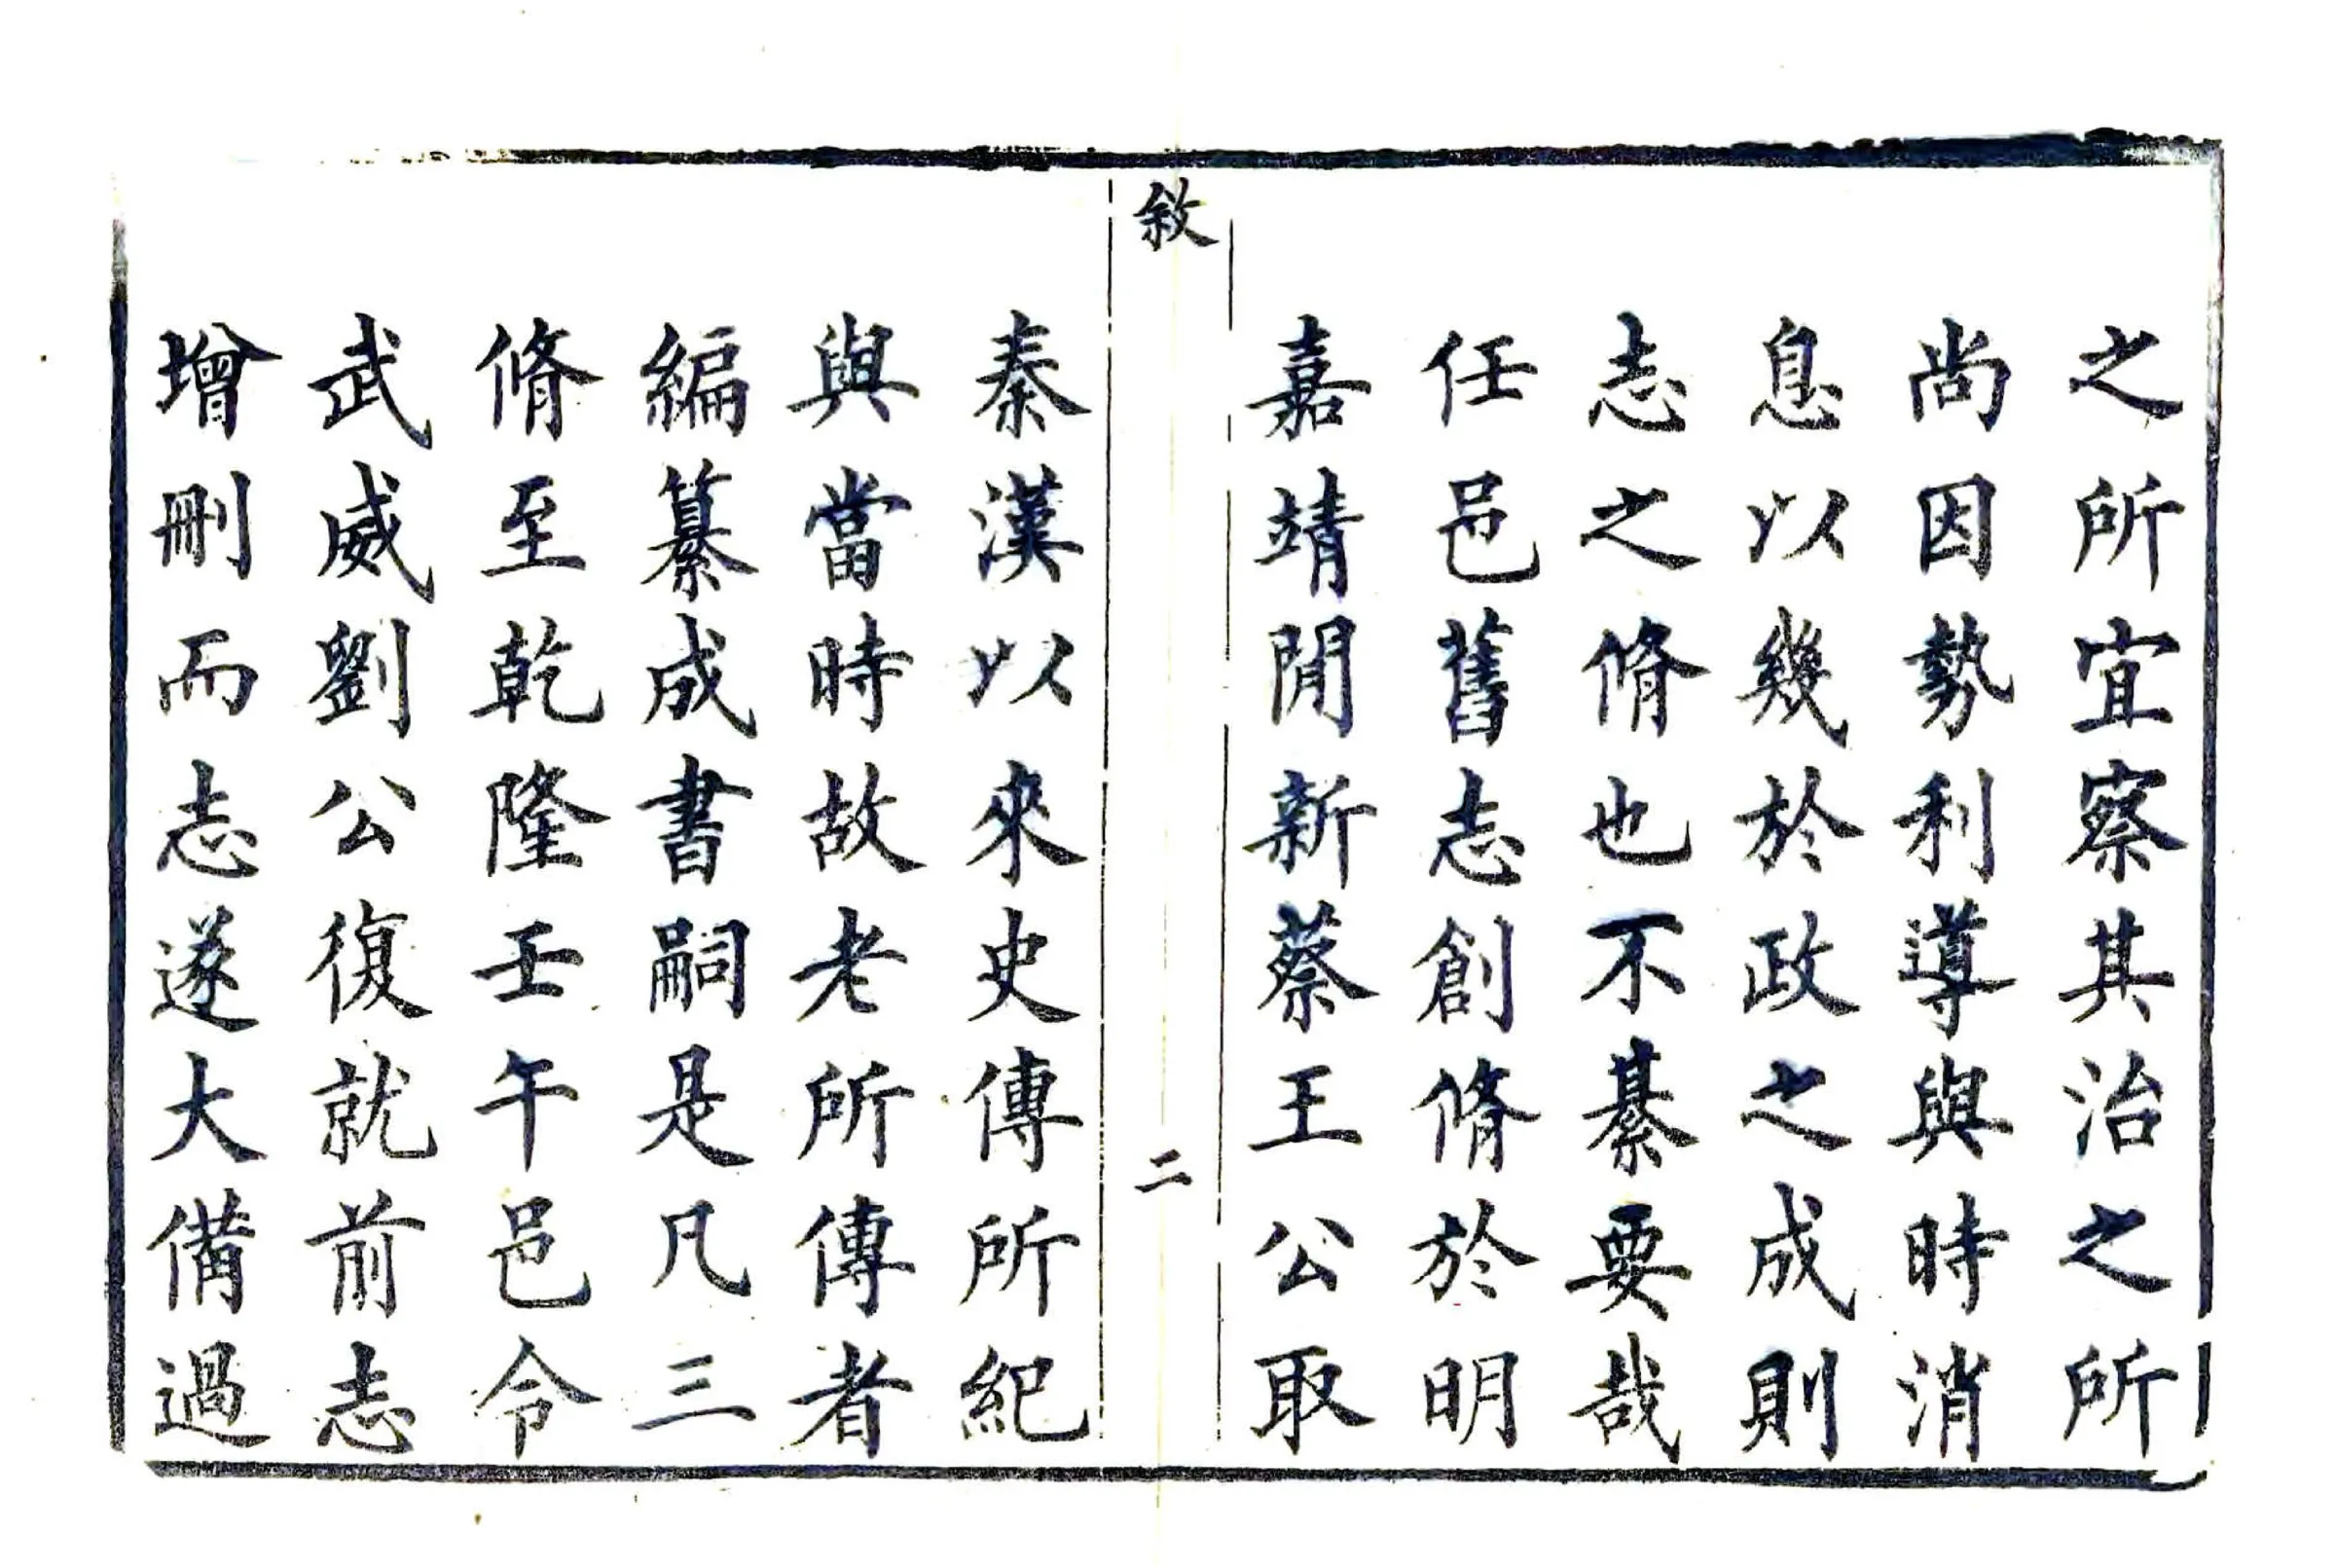 之所宜察其治之所
尚因勢利導與時消
息以幾於政之成則
志之脩也不綦要哉
任邑舊志創脩於明
嘉靖閒新蔡王公取
敘
二
秦漢以來史傳所紀
與當時故老所傳者
編纂成書嗣是凡三
脩至乾隆壬午邑令
武威劉公復就前志
增刪而志遂大備過